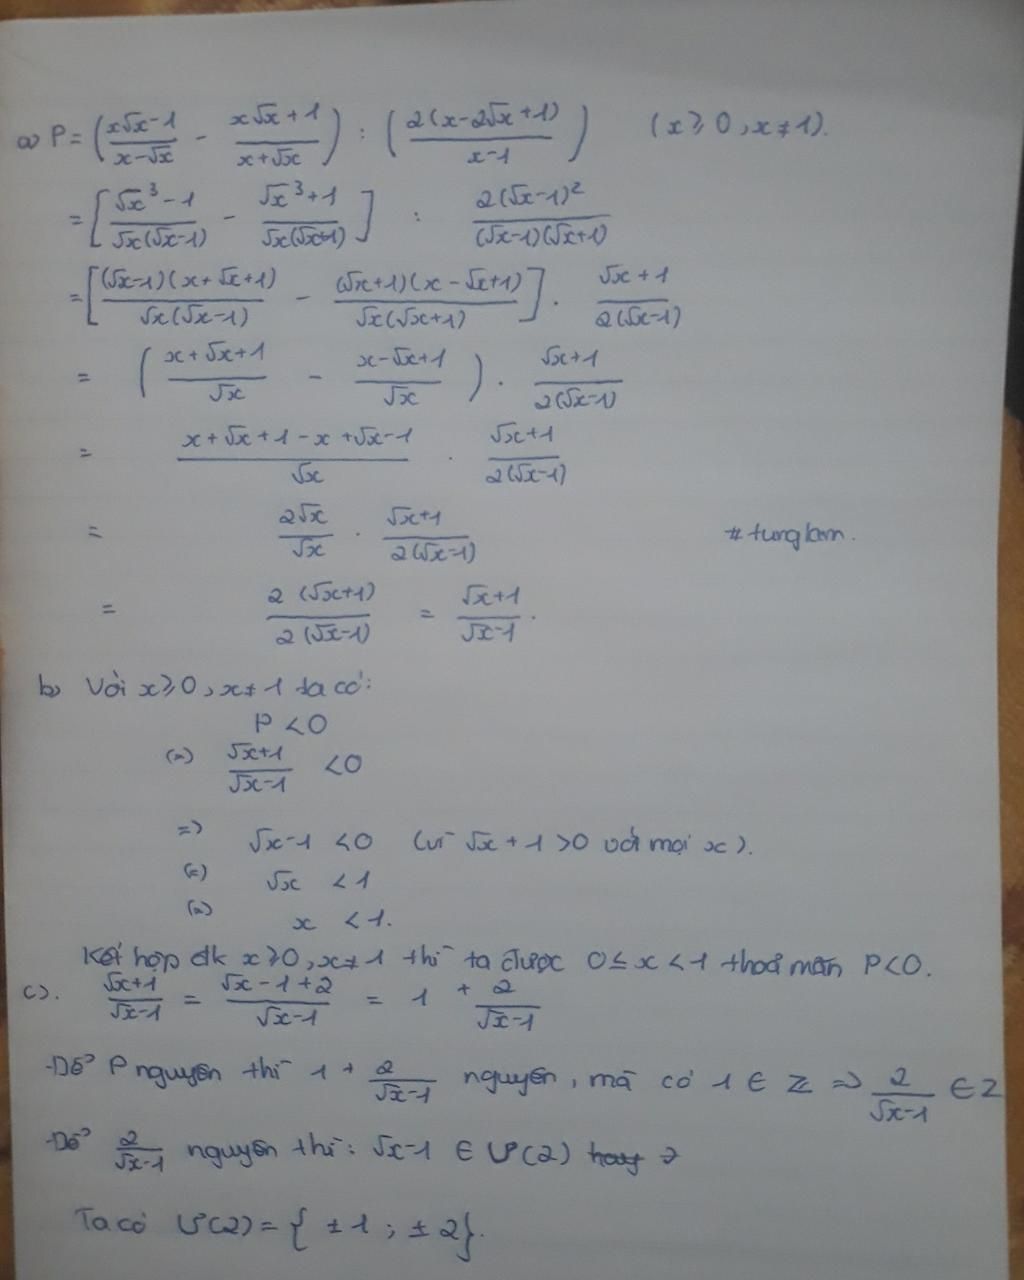 a) P = (x√x-1 / x-√x - x√x+1 / x+√x) : (2(x-2√x+1) / x-1) (x ≥ 0, x ≠ 1).
= [√x³-1 / √x(√x-1) - √x³+1 / √x(√x+1)] : 2(√x-1)² / (√x-1)(√x+1)
= [(√x-1)(x+√x+1) / √x(√x-1) - (√x+1)(x-√x+1) / √x(√x+1)] . √x+1 / 2(√x-1)
= (x+√x+1 / √x - x-√x+1 / √x) . √x+1 / 2(√x-1)
= x+√x+1-x+√x-1 / √x . √x+1 / 2(√x-1)
= 2√x / √x . √x+1 / 2(√x-1) # tunglam.
= 2(√x+1) / 2(√x-1) = √x+1 / √x-1.
b) Với x ≥ 0, x ≠ 1 ta có:
P < 0
(=) √x+1 / √x-1 < 0
=) √x-1 < 0 (vì √x+1 > 0 với mọi x).
(=) √x < 1
(=) x < 1.
Kết hợp đk x ≥ 0, x ≠ 1 thì ta được 0 ≤ x < 1 thoả mãn P < 0.
c). √x+1 / √x-1 = √x-1+2 / √x-1 = 1 + 2 / √x-1
-Để P nguyên thì 1 + 2 / √x-1 nguyên, mà có 1 ∈ Z => 2 / √x-1 ∈ Z
-Để 2 / √x-1 nguyên thì: √x-1 ∈ Ư(2)
Ta có Ư(2) = {±1; ±2}.